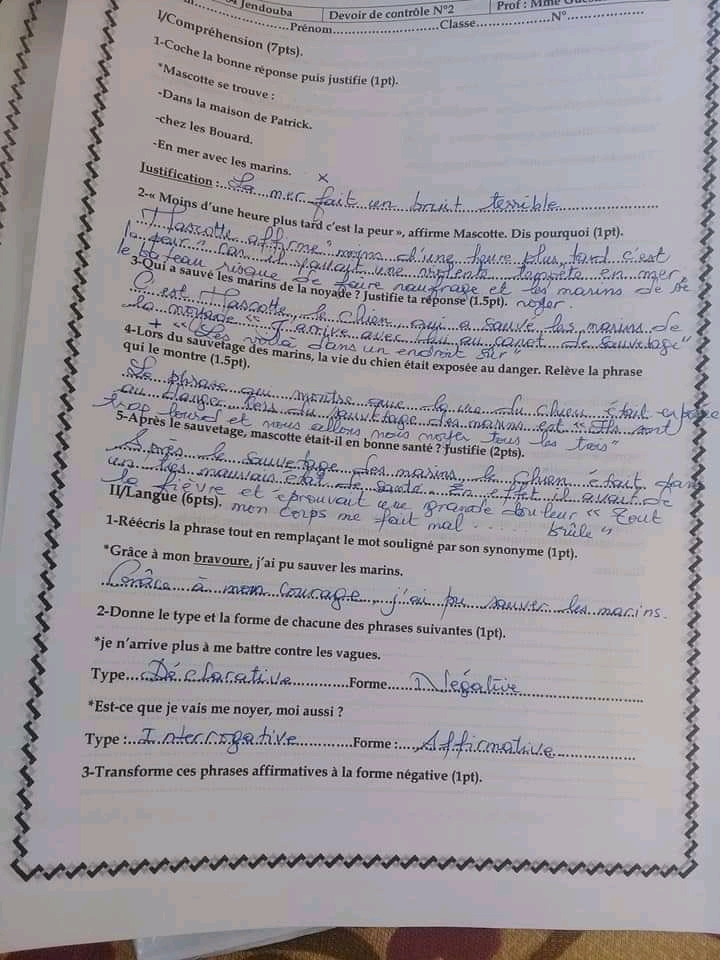 Jendouba
Devoir de contrôle N°2
Prof : Mme
Prénom..............................Classe....................N°..................
I/Compréhension (7pts).
1-Coche la bonne réponse puis justifie (1pt).
*Mascotte se trouve :
-Dans la maison de Patrick.
-chez les Bouard.
-En mer avec les marins. x
Justification : La mer fait un bruit terrible
2-« Moins d'une heure plus tard c'est la peur », affirme Mascotte. Dis pourquoi (1pt).
Mascotte affirme " moins d'une heure plus tard c'est
la peur " car il y aurait une violente tempête en mer,
le bateau risque de faire naufrage et les marins de se
noyer.
3-Qui a sauvé les marins de la noyade ? Justifie ta réponse (1.5pt).
C'est Mascotte le chien qui a sauvé les marins de
la noyade « J'arrive avec au canot de sauvetage"
+ « Les voilà dans un endroit sûr "
4-Lors du sauvetage des marins, la vie du chien était exposée au danger. Relève la phrase
qui le montre (1.5pt).
La phrase qui montre que la vie du chien était exposée
au danger lors du sauvetage des marins est « Ils sont
trop lourds et nous allons nous noyer tous les trois"
5-Après le sauvetage, mascotte était-il en bonne santé ? Justifie (2pts).
Après le sauvetage des marins, le chien était dans
un très mauvais état de santé. En effet il avait de
la fièvre et éprouvait une grande douleur « tout
mon corps me fait mal ... brûle »
II/Langue (6pts).
1-Réécris la phrase tout en remplaçant le mot souligné par son synonyme (1pt).
*Grâce à mon bravoure, j'ai pu sauver les marins.
Grâce à mon courage, j'ai pu sauver les marins.
2-Donne le type et la forme de chacune des phrases suivantes (1pt).
*je n'arrive plus à me battre contre les vagues.
Type....Déclarative..............Forme....Négative
*Est-ce que je vais me noyer, moi aussi ?
Type :..Interrogative..............Forme :....Affirmative
3-Transforme ces phrases affirmatives à la forme négative (1pt).